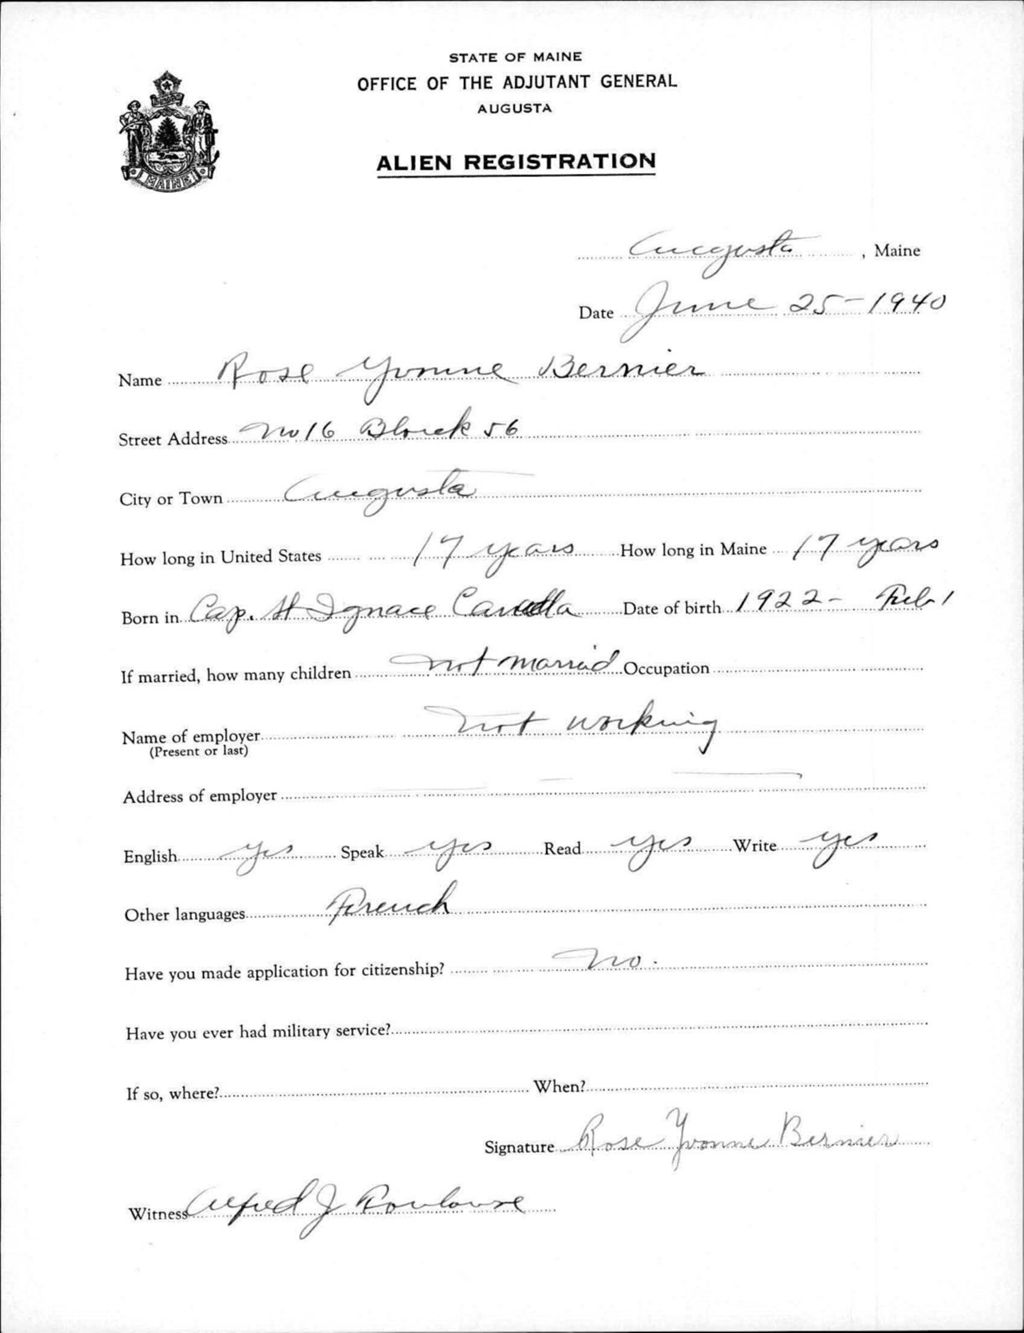 STATE OF MAINE
OFFICE OF THE ADJUTANT GENERAL
AUGUSTA
ALIEN REGISTRATION
MAINE
Augusta, Maine
Date June 25-1940
Name Rose Yvonne Bernier
Street Address No 16 Block 56
City or Town Augusta
How long in United States 17 years How long in Maine 17 years
Born in Cap. St Ignace Canada Date of birth 1922- Feb 1
If married, how many children not married Occupation
Name of employer not working
(Present or last)
Address of employer
English yes Speak yes Read yes Write yes
Other languages French
Have you made application for citizenship? No.
Have you ever had military service?
If so, where? When?
Signature Rose Yvonne Bernier
Witness Alfred J